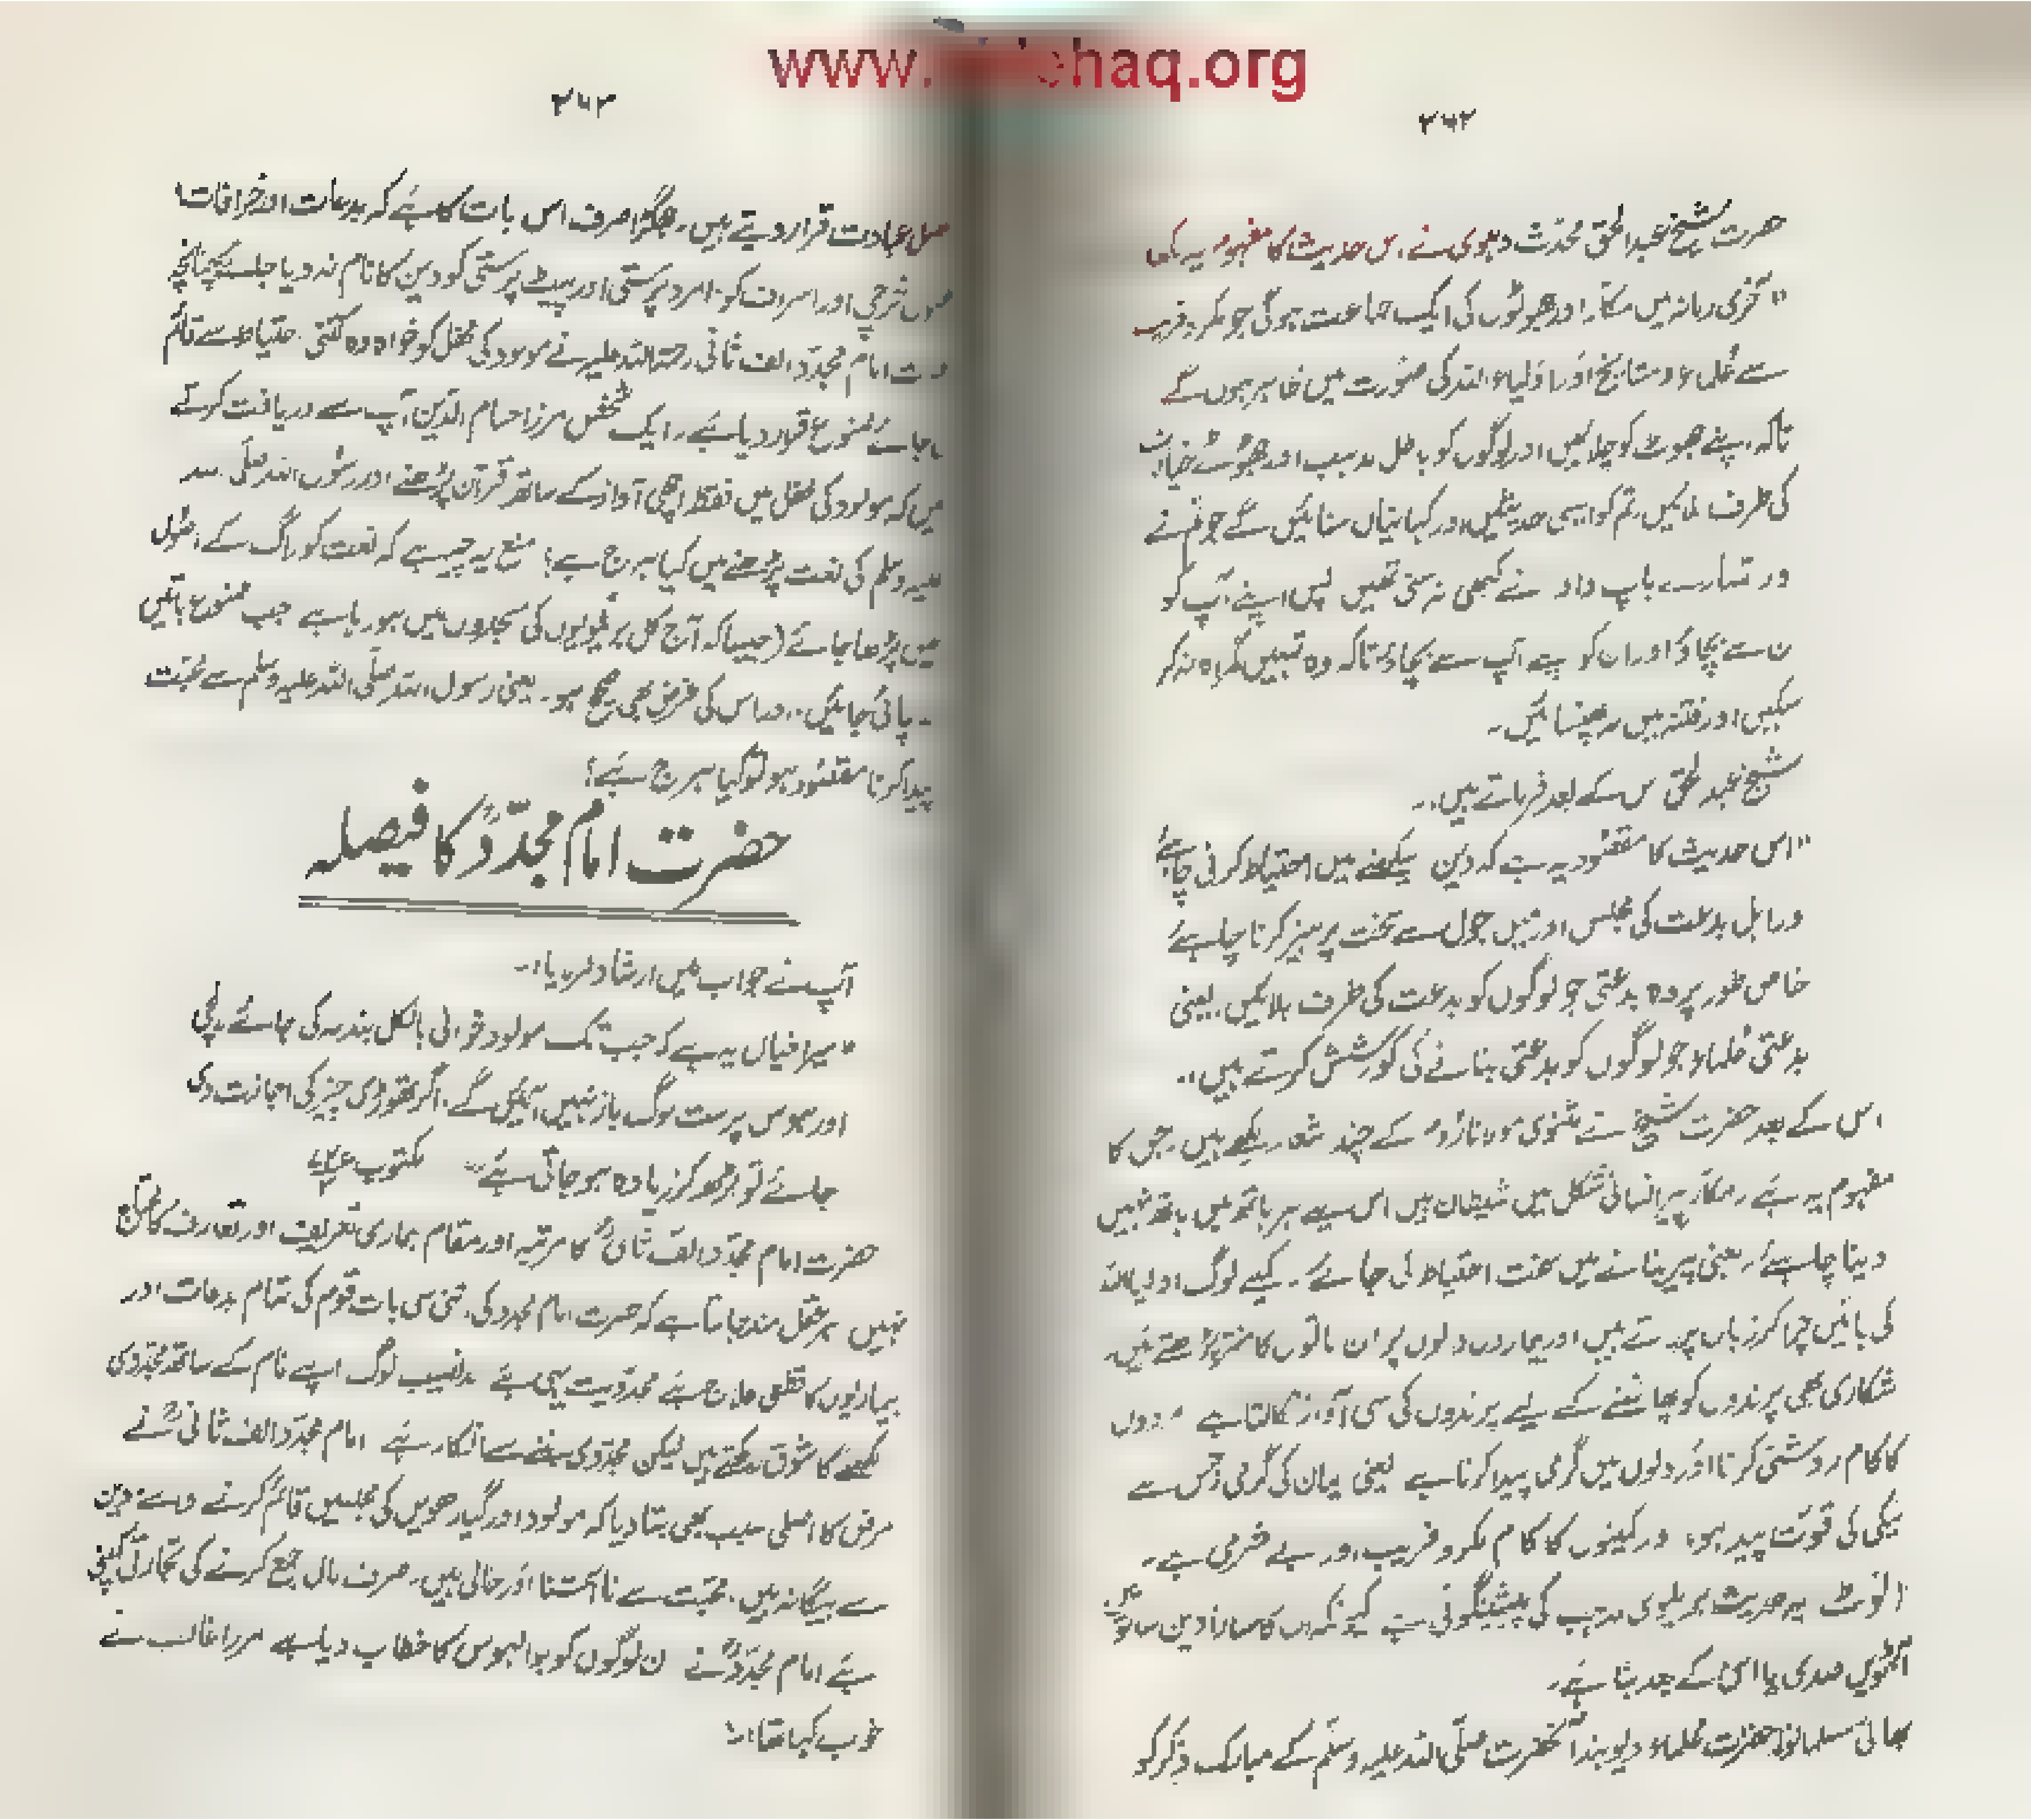 www. haq.org
۲۶۲
حضرت شیخ عبدالحق محدّث دہلوی نے اس حدیث کا مفہوم یہ
"آخری زمانہ میں مکّار اور جھوٹوں کی ایک جماعت ہوگی جو مکر و فریب
سے عُلماء و مشایخ اور اَولیاء اللہ کی صُورت میں ظاہر ہوں گے
تاکہ اپنے جھوٹ کو چلائیں اور لوگوں کو باطل مذہب اور جھُوٹے خیالات
کی طرف لائیں تم کو ایسی حدیثیں اور کہانیاں سنائیں گے جو تم نے
اور تمہارے باپ دادا نے کبھی نہ سنی تھیں پس اپنے آپ کو
ان سے بچاؤ اور ان کو اپنے آپ سے بچاؤ تاکہ وہ تمہیں گمراہ نہ کر
سکیں اور فتنہ میں نہ پھنسائیں۔
شیخ عبدالحق اس کے بعد فرماتے ہیں:۔
"اس حدیث کا مقصُود یہ ہے کہ دین سیکھنے میں احتیاط کرنی چاہئے
اور اہل بدعت کی مجلس اور میل جول سے سخت پرہیز کرنا چاہئے
خاص طور پر وہ بدعتی جو لوگوں کو بدعت کی طرف بلائیں یعنی
بدعتی عُلماء جو لوگوں کو بدعتی بنانے کی کوشش کرتے ہیں"۔
اس کے بعد حضرت شیخ نے مثنوی مولانا روم کے چند شعر لکھے ہیں۔ جس کا
مفہوم یہ ہے۔ مکّار پیر انسانی شکل میں شیطان ہیں اس لیے ہر ہاتھ میں ہاتھ نہیں
دینا چاہیئے۔ یعنی پیر بنانے میں سخت احتیاط کی جائے۔ کمینے لوگ اولیا اللہ
کی باتیں چرا کر زبان پر لاتے ہیں اور بیمار دلوں پر ان باتوں کا منتر پڑھتے ہیں۔
شکاری بھی پرندوں کو پھانسنے کے لیے پرندوں کی سی آواز نکالتا ہے مردوں
کا کام روشنی کرنا اور دلوں میں گرمی پیدا کرنا ہے یعنی ایمان کی گرمی جس سے
نیکی کی قوّت پیدا ہو، اور کمینوں کا کام مکر و فریب اور بے شرمی ہے۔
(نوٹ یہ حدیث بریلوی مذہب کی پیشینگوئی ہے کیونکہ اس کا سارا دین ساتویں
آٹھویں صدی یا اس کے بعد بنا ہے۔
بھائی مسلمانو! حضرات عُلماء دیوبند آنحضرت صلّی اللہ علیہ وسلّم کے مبارک ذکر کو
۲۶۳
عبادت قرار دیتے ہیں۔ جھگڑا صرف اس بات کا ہے کہ بدعات اور خرافات
خرچی اور اسراف کو، امرد پرستی اور پیٹ پرستی کو دین کا نام نہ دیا جائے چنانچہ
امام مجدّد الف ثانی رحمۃ اللہ علیہ نے مولود کی محفل کو خواہ وہ کتنی احتیاط سے قائم
جائے ممنوع قرار دیا ہے۔ ایک شخص مرزا حسام الدّین آپ سے دریافت کرتے
ہیں کہ مولود کی محفل میں فقط اچھی آواز کے ساتھ قرآن پڑھنے اور رسُول اللہ صلّی اللہ
علیہ وسلم کی نعت پڑھنے میں کیا ہرج ہے؟ منع یہ چیز ہے کہ نعت کو راگ کے اصُول
میں پڑھا جائے (جیسا کہ آج کل بریلویوں کی مسجدوں میں ہو رہا ہے جب ممنوع باتیں
نہ پائی جائیں، اور اس کی غرض بھی صحیح ہو۔ یعنی رسول اللہ صلّی اللہ علیہ وسلم سے محبّت
پیدا کرنا مقصُود ہو تو کیا ہرج ہے؟
حضرت امام مجدّدؒ کا فیصلہ
آپ نے جواب میں ارشاد فرمایا:۔
"میرا خیال یہ ہے کہ جب تک مولود خوانی بالکل بند نہ کی جائے لالچی
اور ہوس پرست لوگ باز نہیں آئیں گے۔ اگر تھوڑی چیز کی اجازت دی
جائے تو بڑھ کر زیادہ ہو جاتی ہے" مکتوب
حضرت امام مجدّد الف ثانیؒ کا مرتبہ اور مقام ہماری تعریف اور تعارف کا محتاج
نہیں ہر عقل مند جانتا ہے کہ حضرت امام مجدد کی اتنی سی بات قوم کی تمام بدعات اور
بیماریوں کا قطعی علاج ہے مجدّدیت یہی ہے بدنصیب لوگ اپنے نام کے ساتھ مجدّدی
لکھنے کا شوق رکھتے ہیں لیکن مجدّدی بننے سے انکار ہے امام مجدّد الف ثانیؒ نے
مرض کا اصلی سبب بھی بتا دیا کہ مولود اور گیارھویں کی مجلسیں قائم کرنے والے دین
سے بیگانہ ہیں، محبّت سے ناآشنا اور خالی ہیں۔ صرف مال جمع کرنے کی تجارتی کمپنی
ہے امام مجدّدؒ نے ان لوگوں کو بوالہوس کا خطاب دیا ہے مرزا غالب نے
خوب کہا تھا:۔